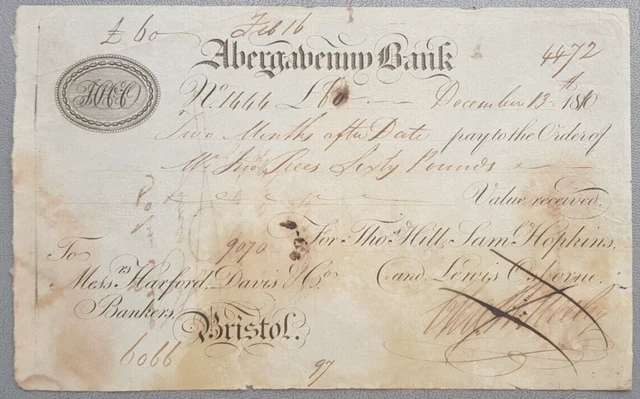 £ 60 Feb 16
Abergavenny Bank 4472
No. 1444 £60 December 13th 1810
Two Months after Date pay to the Order of
Mr. Jno. Rees Sixty Pounds
Value received.
9070 For Thos. Hill, Saml. Hopkins,
To and Lewis Osborne.
Messrs Harford, Davis & Co.
Bankers,
Bristol.
6066
97